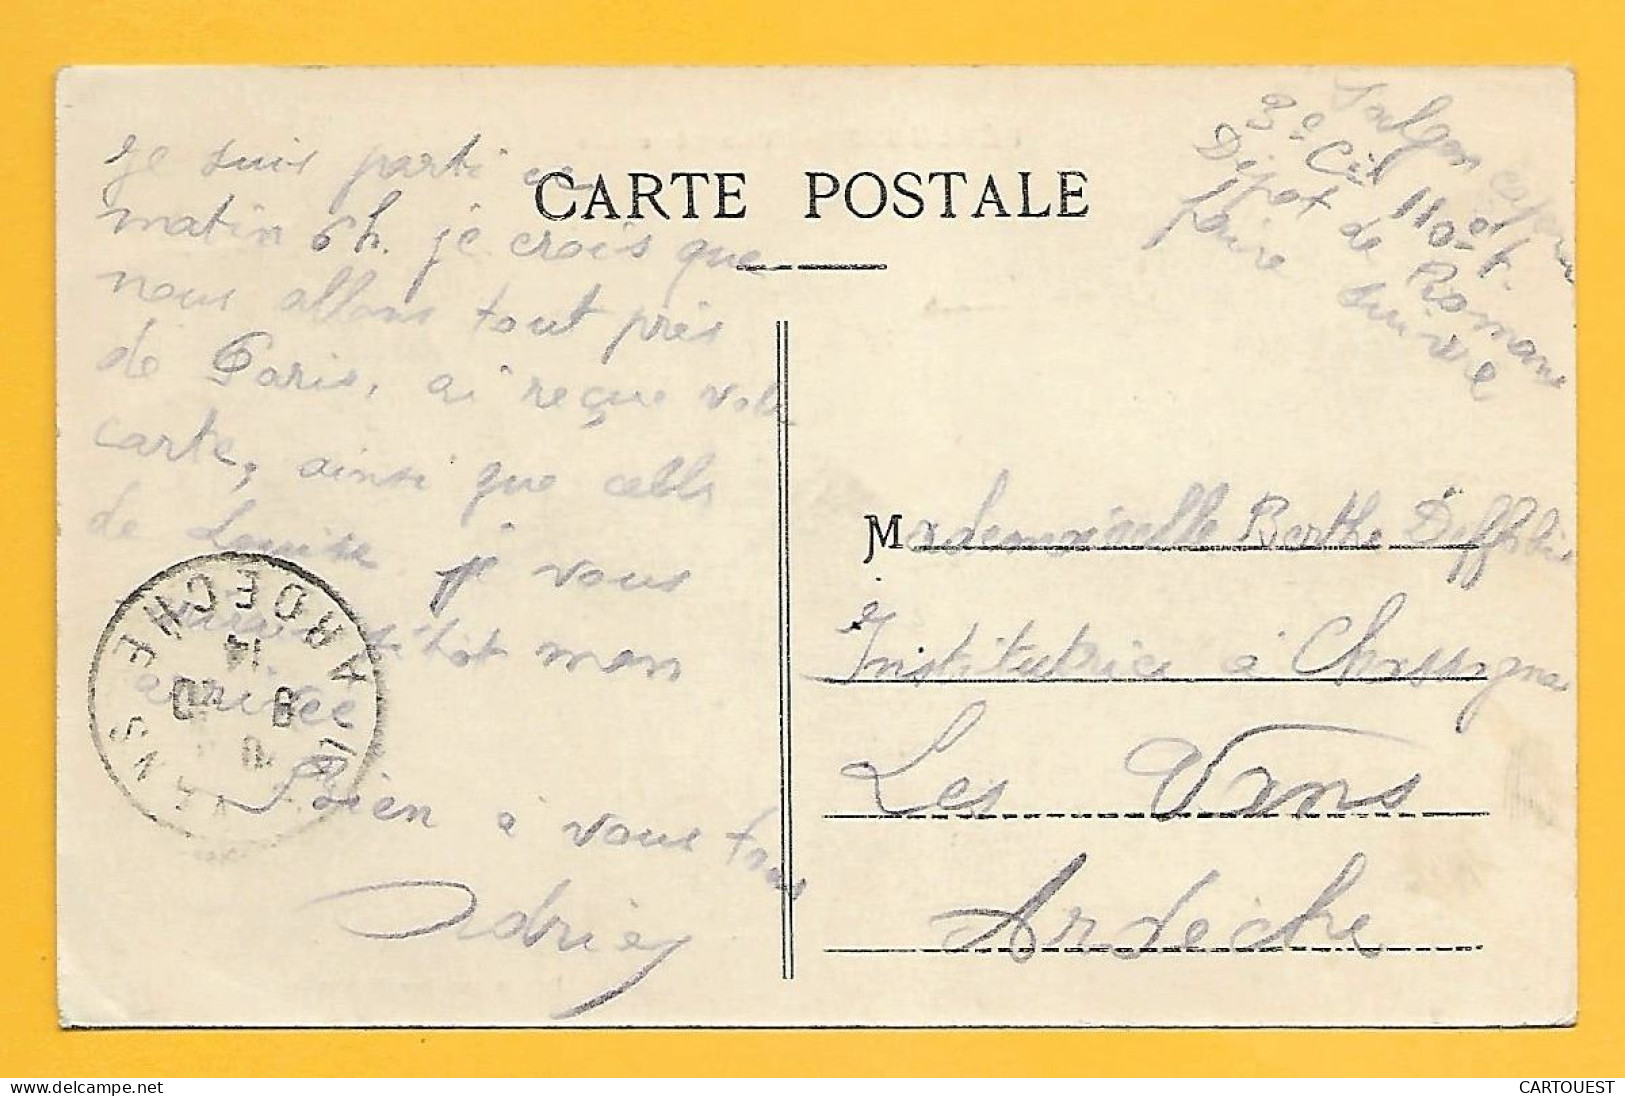 CARTE POSTALE
je suis parti ce
matin 6h. je crois que
nous allons tout près
de Paris, ai reçue votre
carte, ainsi que celle
de Louise je vous
mon
arrivée
Rien à vous tous
Adrien
3e Cie 110e
Dépot de Romans
faire suivre
Mademoiselle Berthe
Institutrice à Chassagnes
Les Vans
Ardèche
LES VANS
ARDECHE
14
CARTOUEST